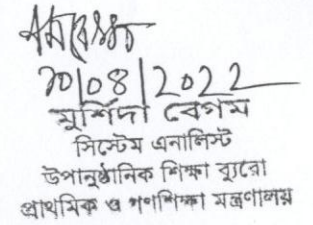 30/08/2022
মুর্শিদা বেগম
সিস্টেম এনালিস্ট
উপানুষ্ঠানিক শিক্ষা ব্যুরো
প্রাথমিক ও গণশিক্ষা মন্ত্রণালয়